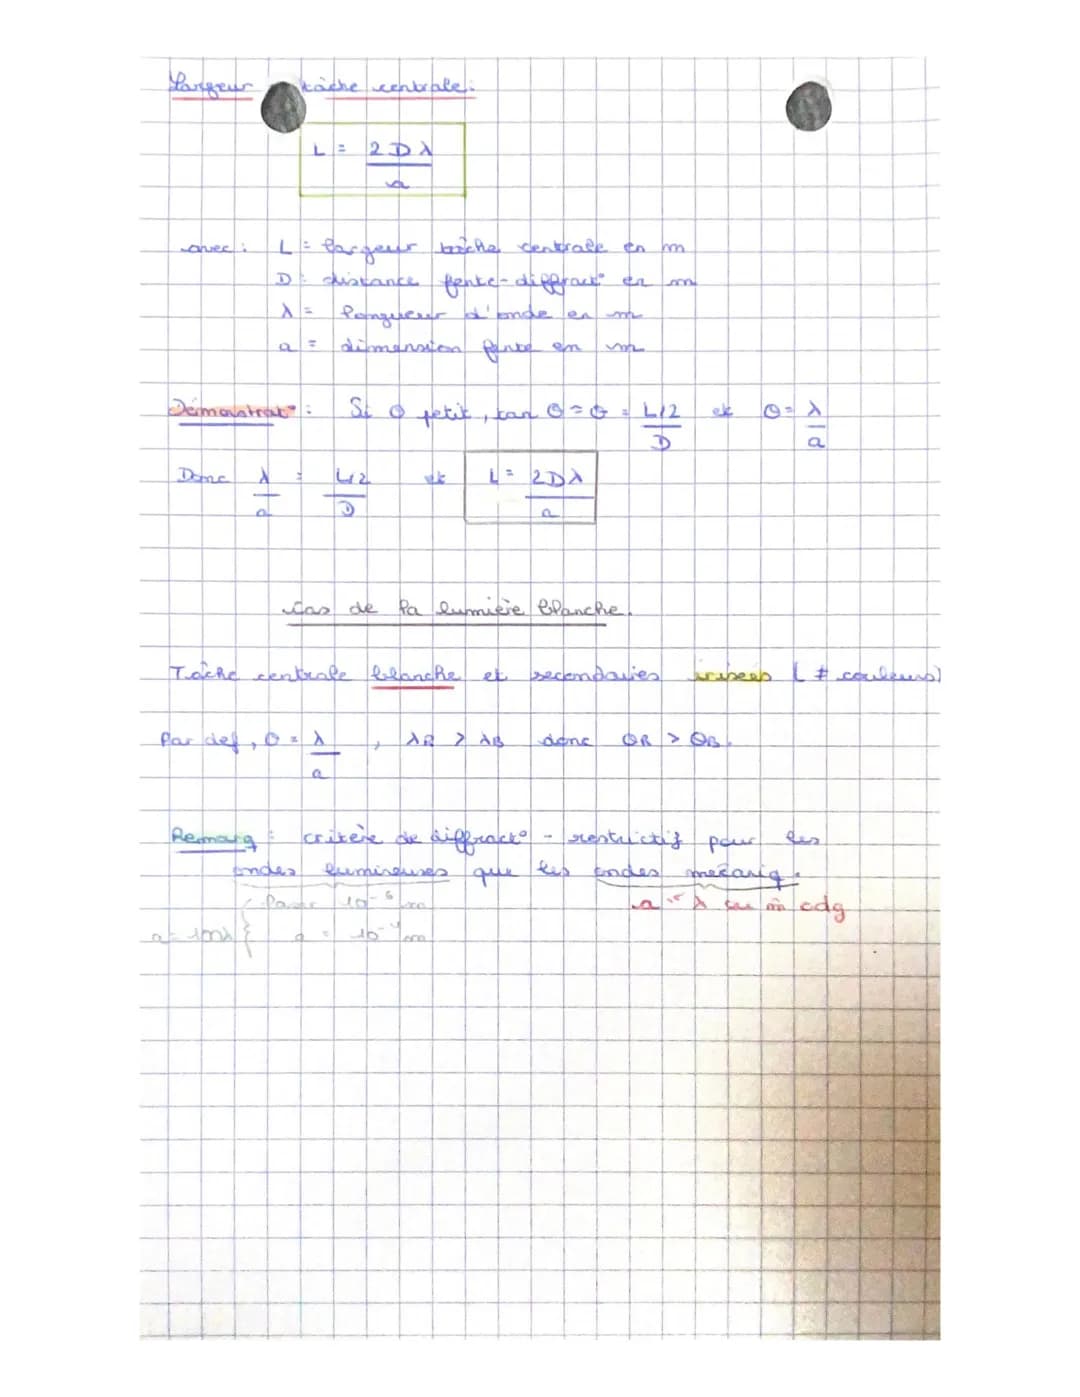 Largeur tâche centrale:
L = 2Dλ
a
avec : L = largeur tâche centrale en m
D : distance fente-diffract° en m
λ = longueur d'onde en m
a = dimension fente en m
Démonstrat° : Si θ petit, tan θ ≈ θ = L/2 et θ = λ
D a
Donc λ = L/2 et L = 2Dλ
a D a
Cas de la lumière blanche.
Tâche centrale blanche et secondaires irisées (≠ couleurs)
Par def, θ = λ , λR > λB donc θR > θB.
a
Remarq : critère de diffract° - restrictif pour les
ondes lumineuses que les ondes mécaniq.
10⁻⁶ m a λ ou m̂ odg
a = 100λ { a = 10⁻⁴ m